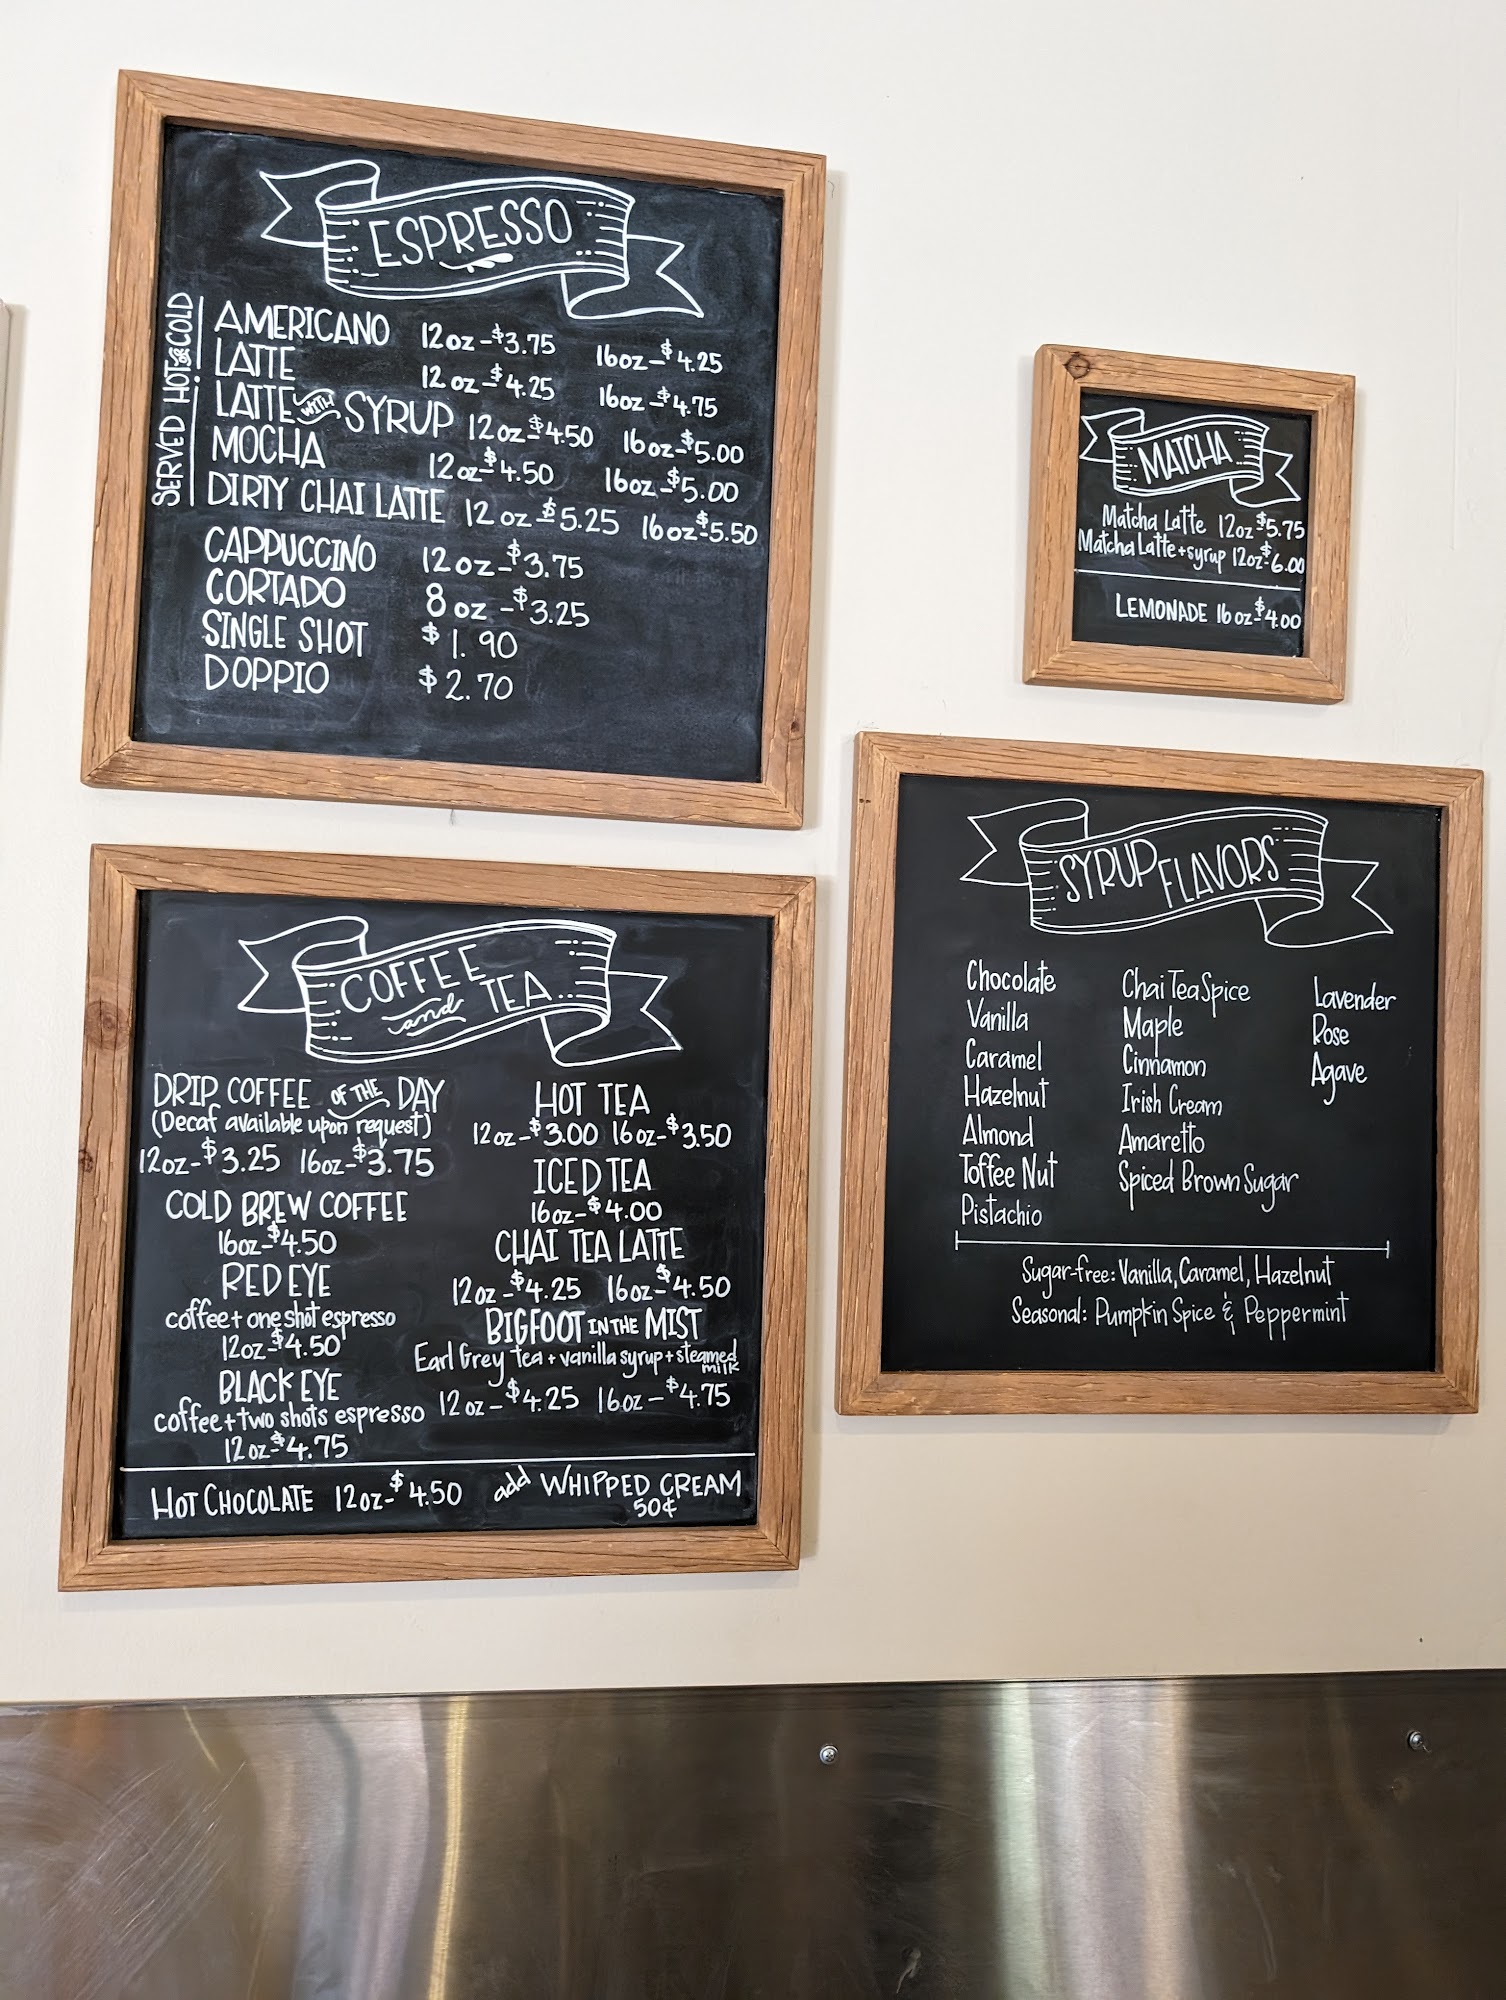 ESPRESSO
SERVED HOT OR COLD
AMERICANO 12oz-$3.75 16oz-$4.25
LATTE 12oz-$4.25 16oz-$4.75
LATTE WITH SYRUP 12oz-$4.50 16oz-$5.00
MOCHA 12oz-$4.50 16oz-$5.00
DIRTY CHAI LATTE 12oz-$5.25 16oz-$5.50
CAPPUCCINO 12oz-$3.75
CORTADO 8oz-$3.25
SINGLE SHOT $1.90
DOPPIO $2.70
MATCHA
Matcha Latte 12oz-$5.75
Matcha Latte+syrup 12oz-$6.00
LEMONADE 16oz-$4.00
COFFEE and TEA
DRIP COFFEE OF THE DAY
(Decaf available upon request)
12oz-$3.25 16oz-$3.75
COLD BREW COFFEE
16oz-$4.50
RED EYE
coffee+one shot espresso
12oz-$4.50
BLACK EYE
coffee+two shots espresso
12oz-$4.75
HOT TEA
12oz-$3.00 16oz-$3.50
ICED TEA
16oz-$4.00
CHAI TEA LATTE
12oz-$4.25 16oz-$4.50
BIGFOOT IN THE MIST
Earl Grey tea+vanilla syrup+steamed
milk
12oz-$4.25 16oz-$4.75
HOT CHOCOLATE 12oz-$4.50 add WHIPPED CREAM
50¢
SYRUP FLAVORS
Chocolate
Vanilla
Caramel
Hazelnut
Almond
Toffee Nut
Pistachio
Chai Tea Spice
Maple
Cinnamon
Irish Cream
Amaretto
Spiced Brown Sugar
Lavender
Rose
Agave
Sugar-free: Vanilla, Caramel, Hazelnut
Seasonal: Pumpkin Spice & Peppermint